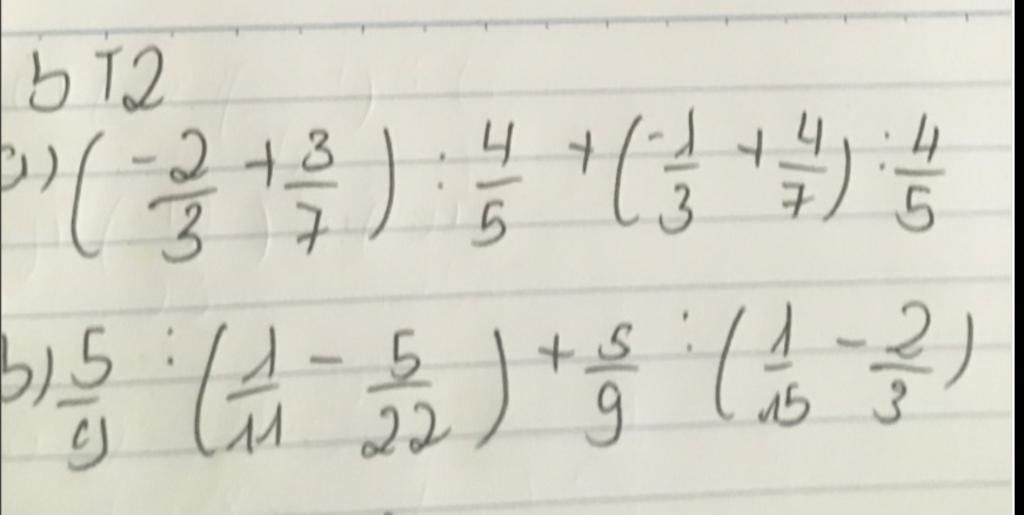 bT2
a) (-2/3 + 3/7) : 4/5 + (-1/3 + 4/7) : 4/5
b) 5/9 : (1/11 - 5/22) + 5/9 : (1/15 - 2/3)